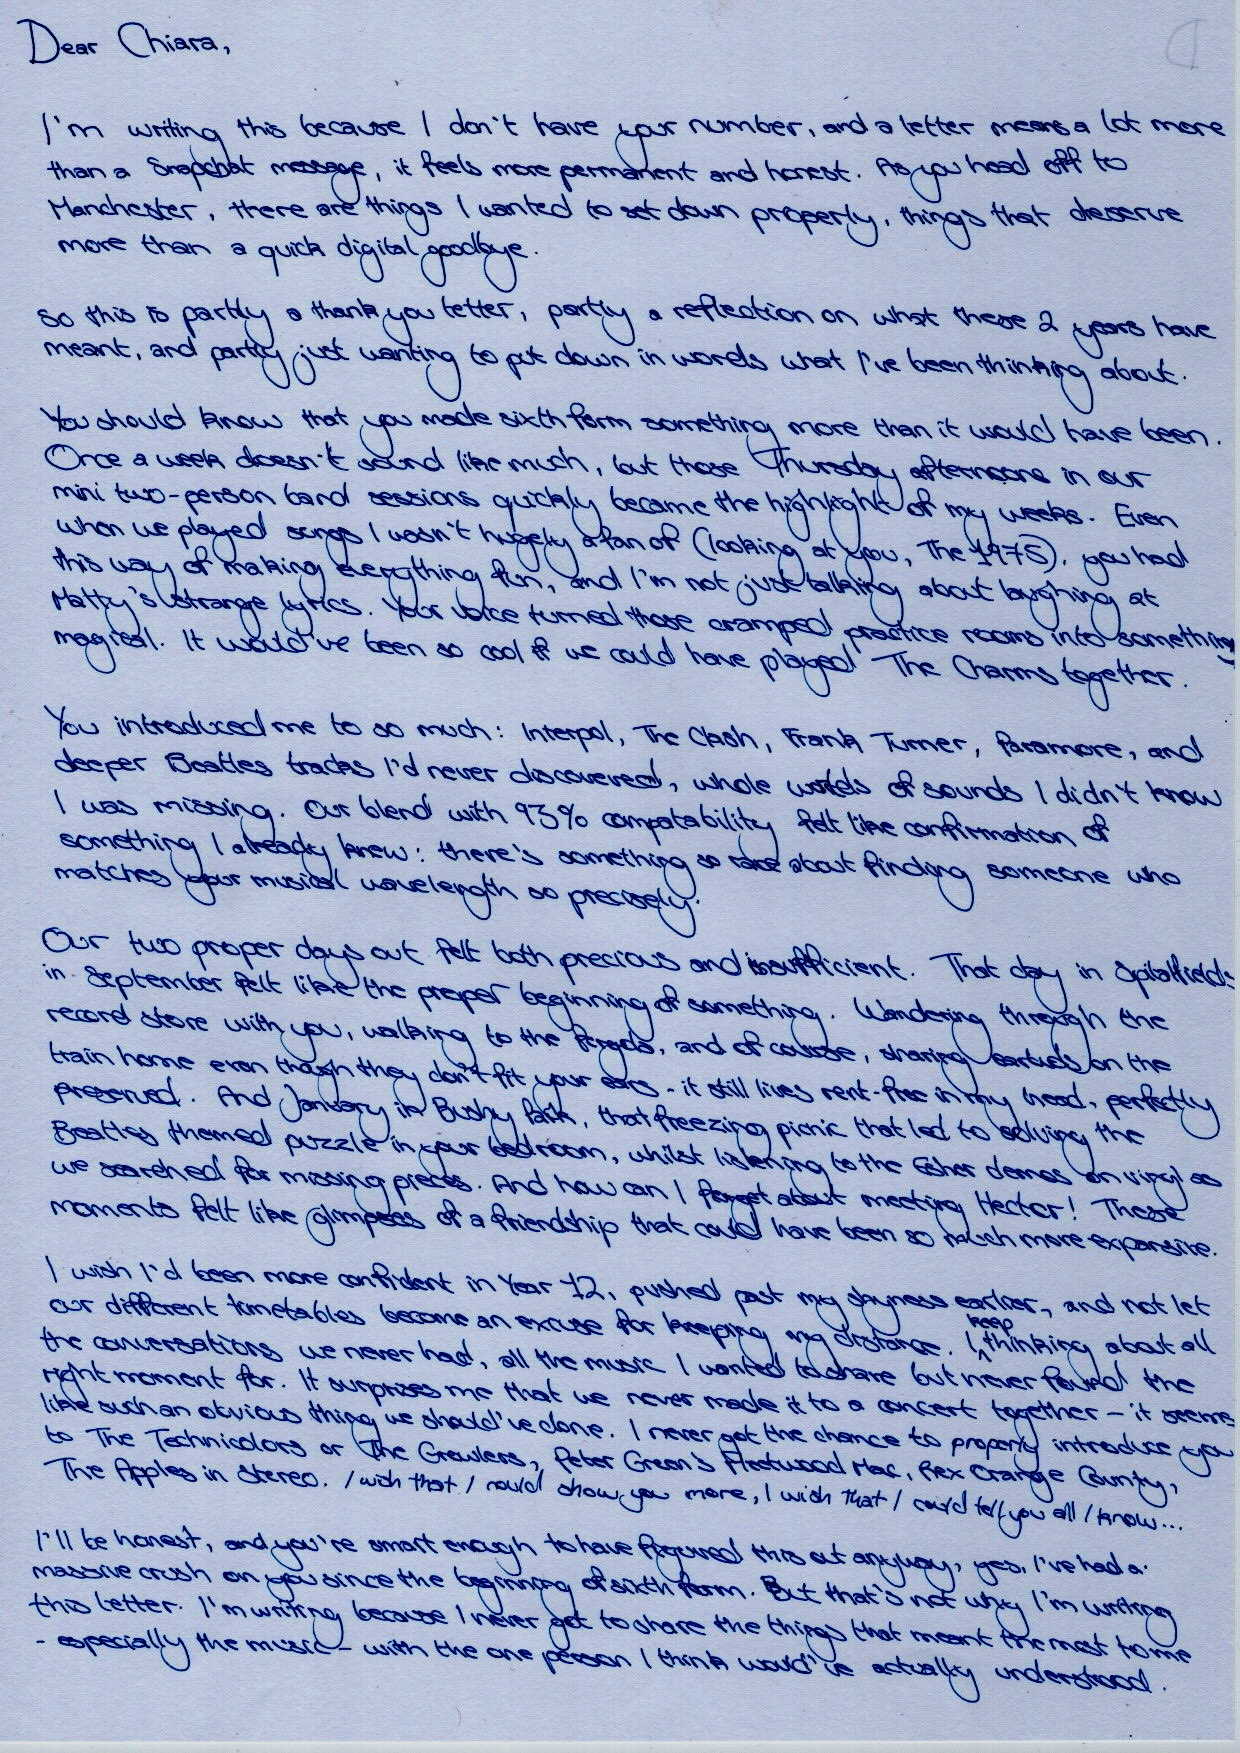 Dear Chiara,
I'm writing this because I don't have your number, and a letter means a lot more
than a Snapchat message, it feels more permanent and honest. As you head off to
Manchester, there are things I wanted to set down properly, things that deserve
more than a quick digital goodbye.
So this is partly a thank you letter, partly a reflection on what these 2 years have
meant, and partly just wanting to put down in words what I've been thinking about.
You should know that you made sixth form something more than it would have been.
Once a week doesn't sound like much, but those Thursday afternoons in our
mini two-person band sessions quickly became the highlight of my weeks. Even
when we played songs I wasn't hugely a fan of (looking at you, The 1975), you had
this way of making everything fun, and I'm not just talking about laughing at
Matty's strange lyrics. Your voice turned those cramped practice rooms into something
magical. It would've been so cool if we could have played The Charms together.
You introduced me to so much: Interpol, The Clash, Frank Turner, Paramore, and
deeper Beatles tracks I'd never discovered, whole worlds of sounds I didn't know
I was missing. Our blend with 93% compatability felt like confirmation of
something I already knew: there's something so rare about finding someone who
matches your musical wavelength so precisely.
Our two proper days out felt both precious and insufficient. That day in Spitalfields
in September felt like the proper beginning of something. Wandering through the
record store with you, walking to the Pergola, and of course, sharing earbuds on the
train home even though they don't fit your ears - it still lives rent-free in my head, perfectly
preserved. And January in Bushy Park, that freezing picnic that led to solving the
Beatles themed puzzle in your bedroom, whilst listening to the Esher demos on vinyl as
we searched for missing pieces. And how can I forget about meeting Hector! These
moments felt like glimpses of a friendship that could have been so much more expansive.
I wish I'd been more confident in Year 12, pushed past my shyness earlier, and not let
our different timetables become an excuse for keeping my distance. I keep thinking about all
the conversations we never had, all the music I wanted to share but never found the
right moment for. It surprises me that we never made it to a concert together - it seems
like such an obvious thing we should've done. I never got the chance to properly introduce you
to The Technicolors or The Growlers, Peter Green's Fleetwood Mac, Rex Orange County,
The Apples in Stereo. I wish that I could show you more, I wish that I could tell you all I know...
I'll be honest, and you're smart enough to have figured this out anyway, yes, I've had a
massive crush on you since the beginning of sixth form. But that's not why I'm writing
this letter. I'm writing because I never got to share the things that meant the most to me
- especially the music - with the one person I think would've actually understood.